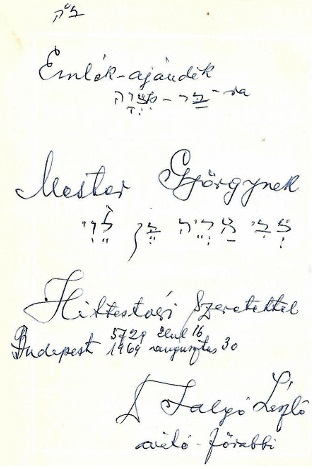 ב״ה
Emlék-ajándék
בַּר-מִצְוָה-ra
Mester Györgynek
צְבִי אַרְיֵה בֶּן לֵוִי
Hittestvéri szeretettel
Budapest 5729 elul 16
1969 augusztus 30
Dr Salgó László
főrabbi